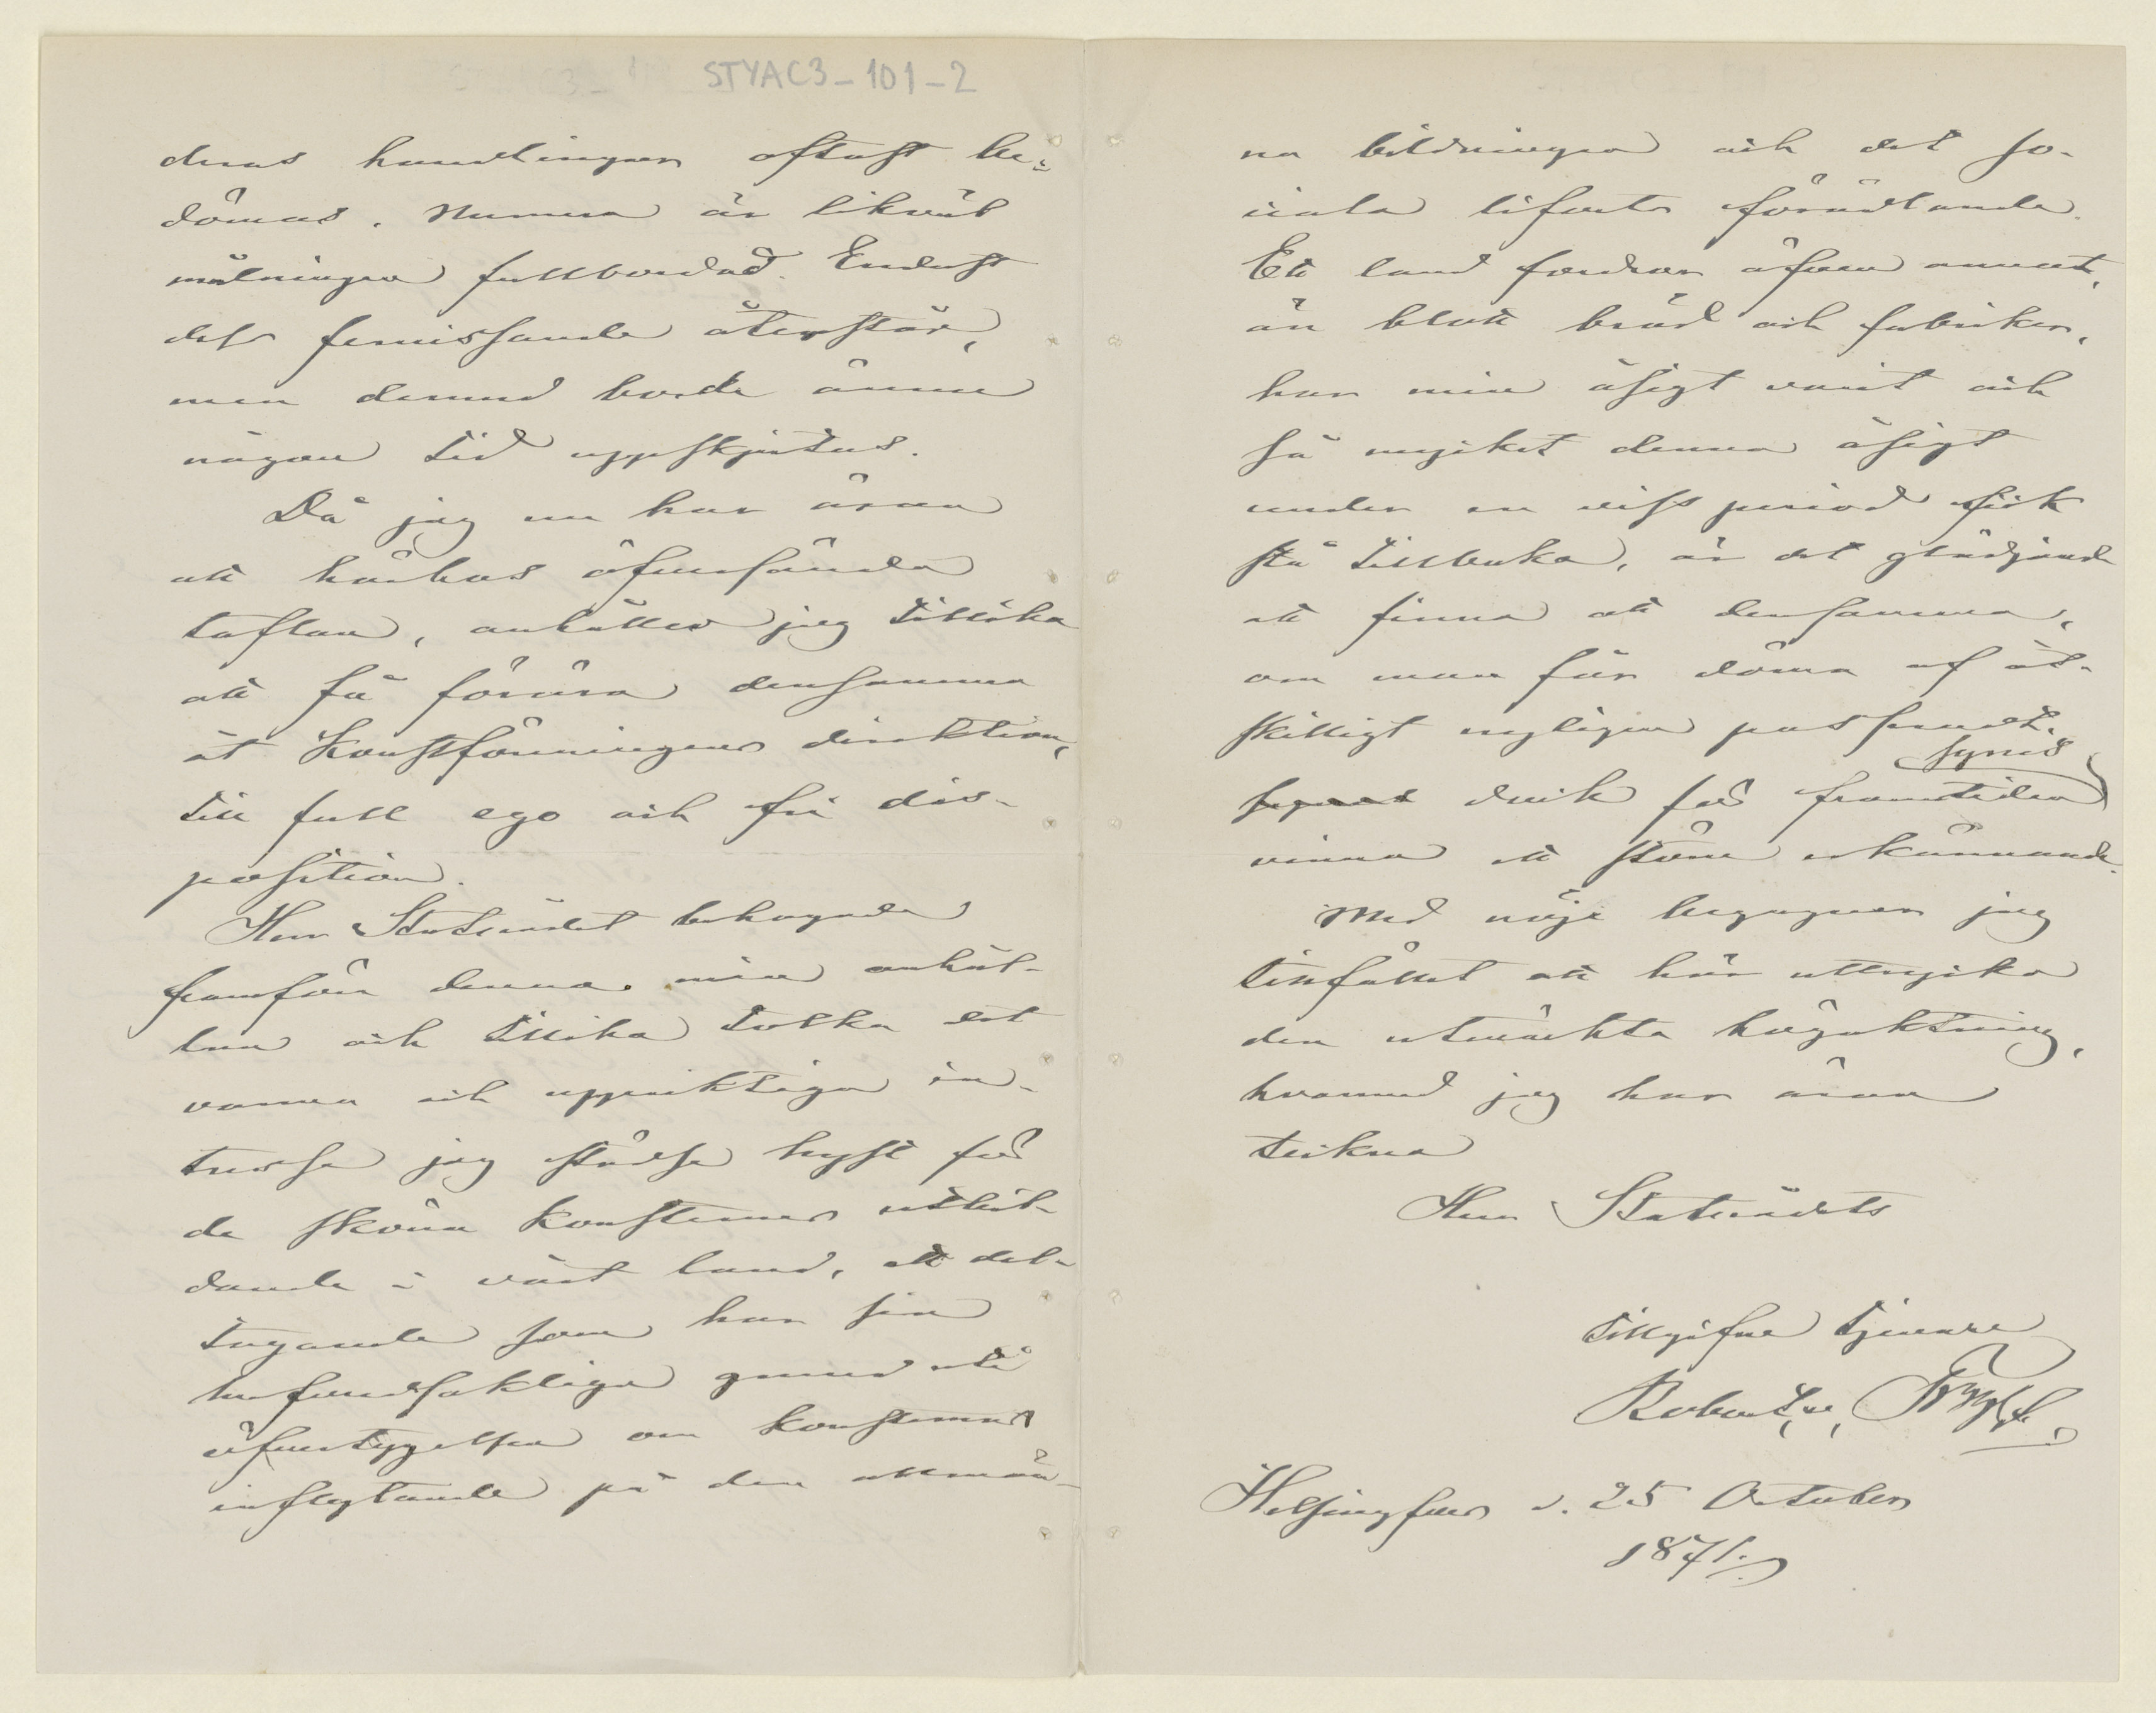 STYAC3-101-2
deras handlingar oftast be-
dömas. Numera är likväl
målningen fullbordad. Endast
dess fernissande återstår,
men dermed borde ännu
någon tid uppskjutas.
Då jag nu har äran
att härhos öfversända
taflan, anhåller jag tillika
att få förära densamma
åt Konstföreningens direktion,
till full ego och fri dis-
position.
Herr Statsrådet behagade
framföra denna min anhål-
lan och tillika tolka det
varma och uppriktiga in-
tresse jag städse hyst för
de sköna konsternas utbil-
dande i vårt land, ett del-
tagande som har sin
hufvudsakliga grund uti
öfvertygelsen om konsternas
inflytande på den allmän-
na bildningen och det so-
ciala lifvets förädlande.
Ett land fordrar äfven annat,
än blott bröd och fabriker,
har min åsigt varit och
så mycket denna åsigt
under en viss period fick
stå tillbaka, är det glädjande
att finna att densamma,
om man får döma af åt-
skilligt nyligen passeradt,
synes
synes dock för framtiden
vinna ett större erkännande.
Med nöje begagnar jag
tillfället att här uttrycka
den utmärkta högaktning,
hvarmed jag har äran
teckna
Herr Statsrådets
tillgifne tjenare
Robert
Helsingfors d. 25 October
1871.